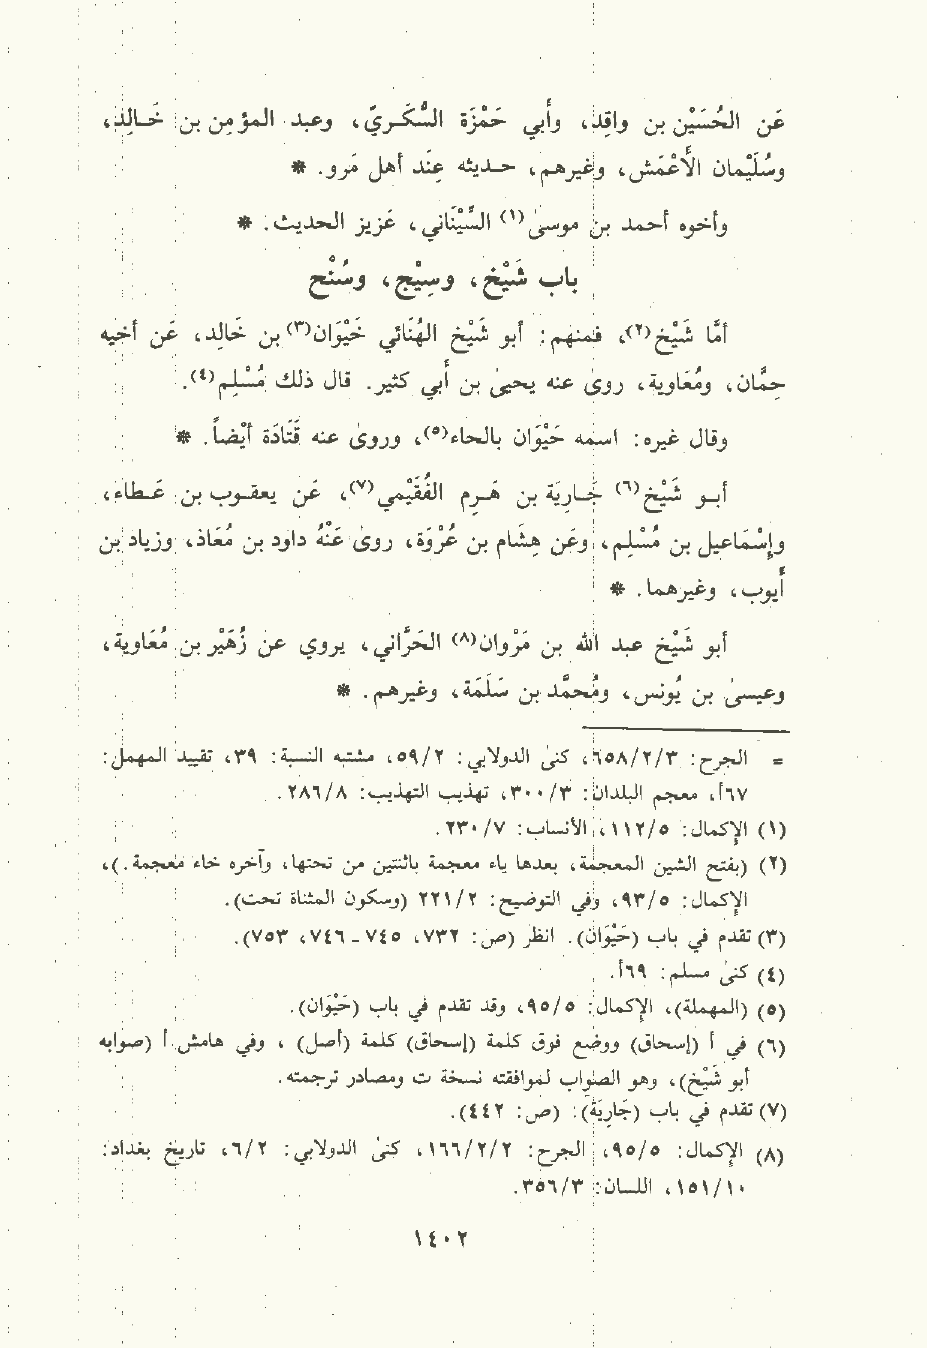 عَن الحُسَيْن بن واقِد، وأبي حَمْزَة السُّكَّـريّ، وعبد المؤمِن بن خَـالِد،
وسُلَيْمان الأَعْمَش، وغيرهم، حـديثه عِنْد أهل مَرو. *
وأخوه أحمد بن موسىٰ(١) السِّيْنَاني، عَزيز الحديث. *
باب شَيْخ، وسِيْج، وسُنْح
أمّا شَيْخ(٢)، فمنهم: أبو شَيْخ الهُنَائي خَيْوَان(٣) بن خَالِد، عَن أخيه
حِمَّان، ومُعَاوية، روىٰ عنه يحيىٰ بن أبي كثير. قال ذلك مُسْلِم(٤).
وقال غيره: اسمه حَيْوَان بالحاء(٥)، وروىٰ عنه قَتَادَة أيْضاً. *
أبـو شَيْخ(٦) جَـارِيَة بن هَـرِم الفُقَيْمي(٧)، عَن يعقـوب بن عَـطاء،
وإسْمَاعيل بن مُسْلِم، وعَن هِشَام بن عُرْوَة، روىٰ عَنْهُ داود بن مُعَاذ، وزياد بن
أيوب، وغيرهما. *
أبو شَيْخ عبد الله بن مَرْوان(٨) الحَرَّاني، يروي عن زُهَيْر بن مُعَاوية،
وعيسىٰ بن يُونس، ومُحمَّد بن سَلَمَة، وغيرهم. *
= الجرح: ٦٥٨/٢/٣، كنىٰ الدولابي: ٥٩/٢، مشتبه النسبة: ٣٩، تقييد المهمل:
٦٧أ، معجم البلدان: ٣٠٠/٣، تهذيب التهذيب: ٢٨٦/٨.
(١) الإكمال: ١١٢/٥، الأنساب: ٢٣٠/٧.
(٢) (بفتح الشين المعجمة، بعدها ياء معجمة باثنتين من تحتها، وآخره خاء معجمة.)،
الإكمال: ٩٣/٥، وفي التوضيح: ٢٢١/٢ (وسكون المثناة تحت).
(٣) تقدم في باب (خَيْوَان). انظر (ص: ٧٣٢، ٧٤٥ - ٧٤٦، ٧٥٣).
(٤) كنىٰ مسلم: ٦٩أ.
(٥) (المهملة)، الإكمال: ٩٥/٥، وقد تقدم في باب (خَيْوَان).
(٦) في أ (إسحاق) ووضع فوق كلمة (إسحاق) كلمة (أصل) ، وفي هامش أ (صوابه
أبو شَيْخ)، وهو الصواب لموافقته نسخة ت ومصادر ترجمته.
(٧) تقدم في باب (جَارِيَة): (ص: ٤٤٢).
(٨) الإكمال: ٩٥/٥، الجرح: ١٦٦/٢/٢، كنىٰ الدولابي: ٦/٢، تاريخ بغداد:
١٥١/١٠، اللسان: ٣٥٦/٣.
١٤٠٢